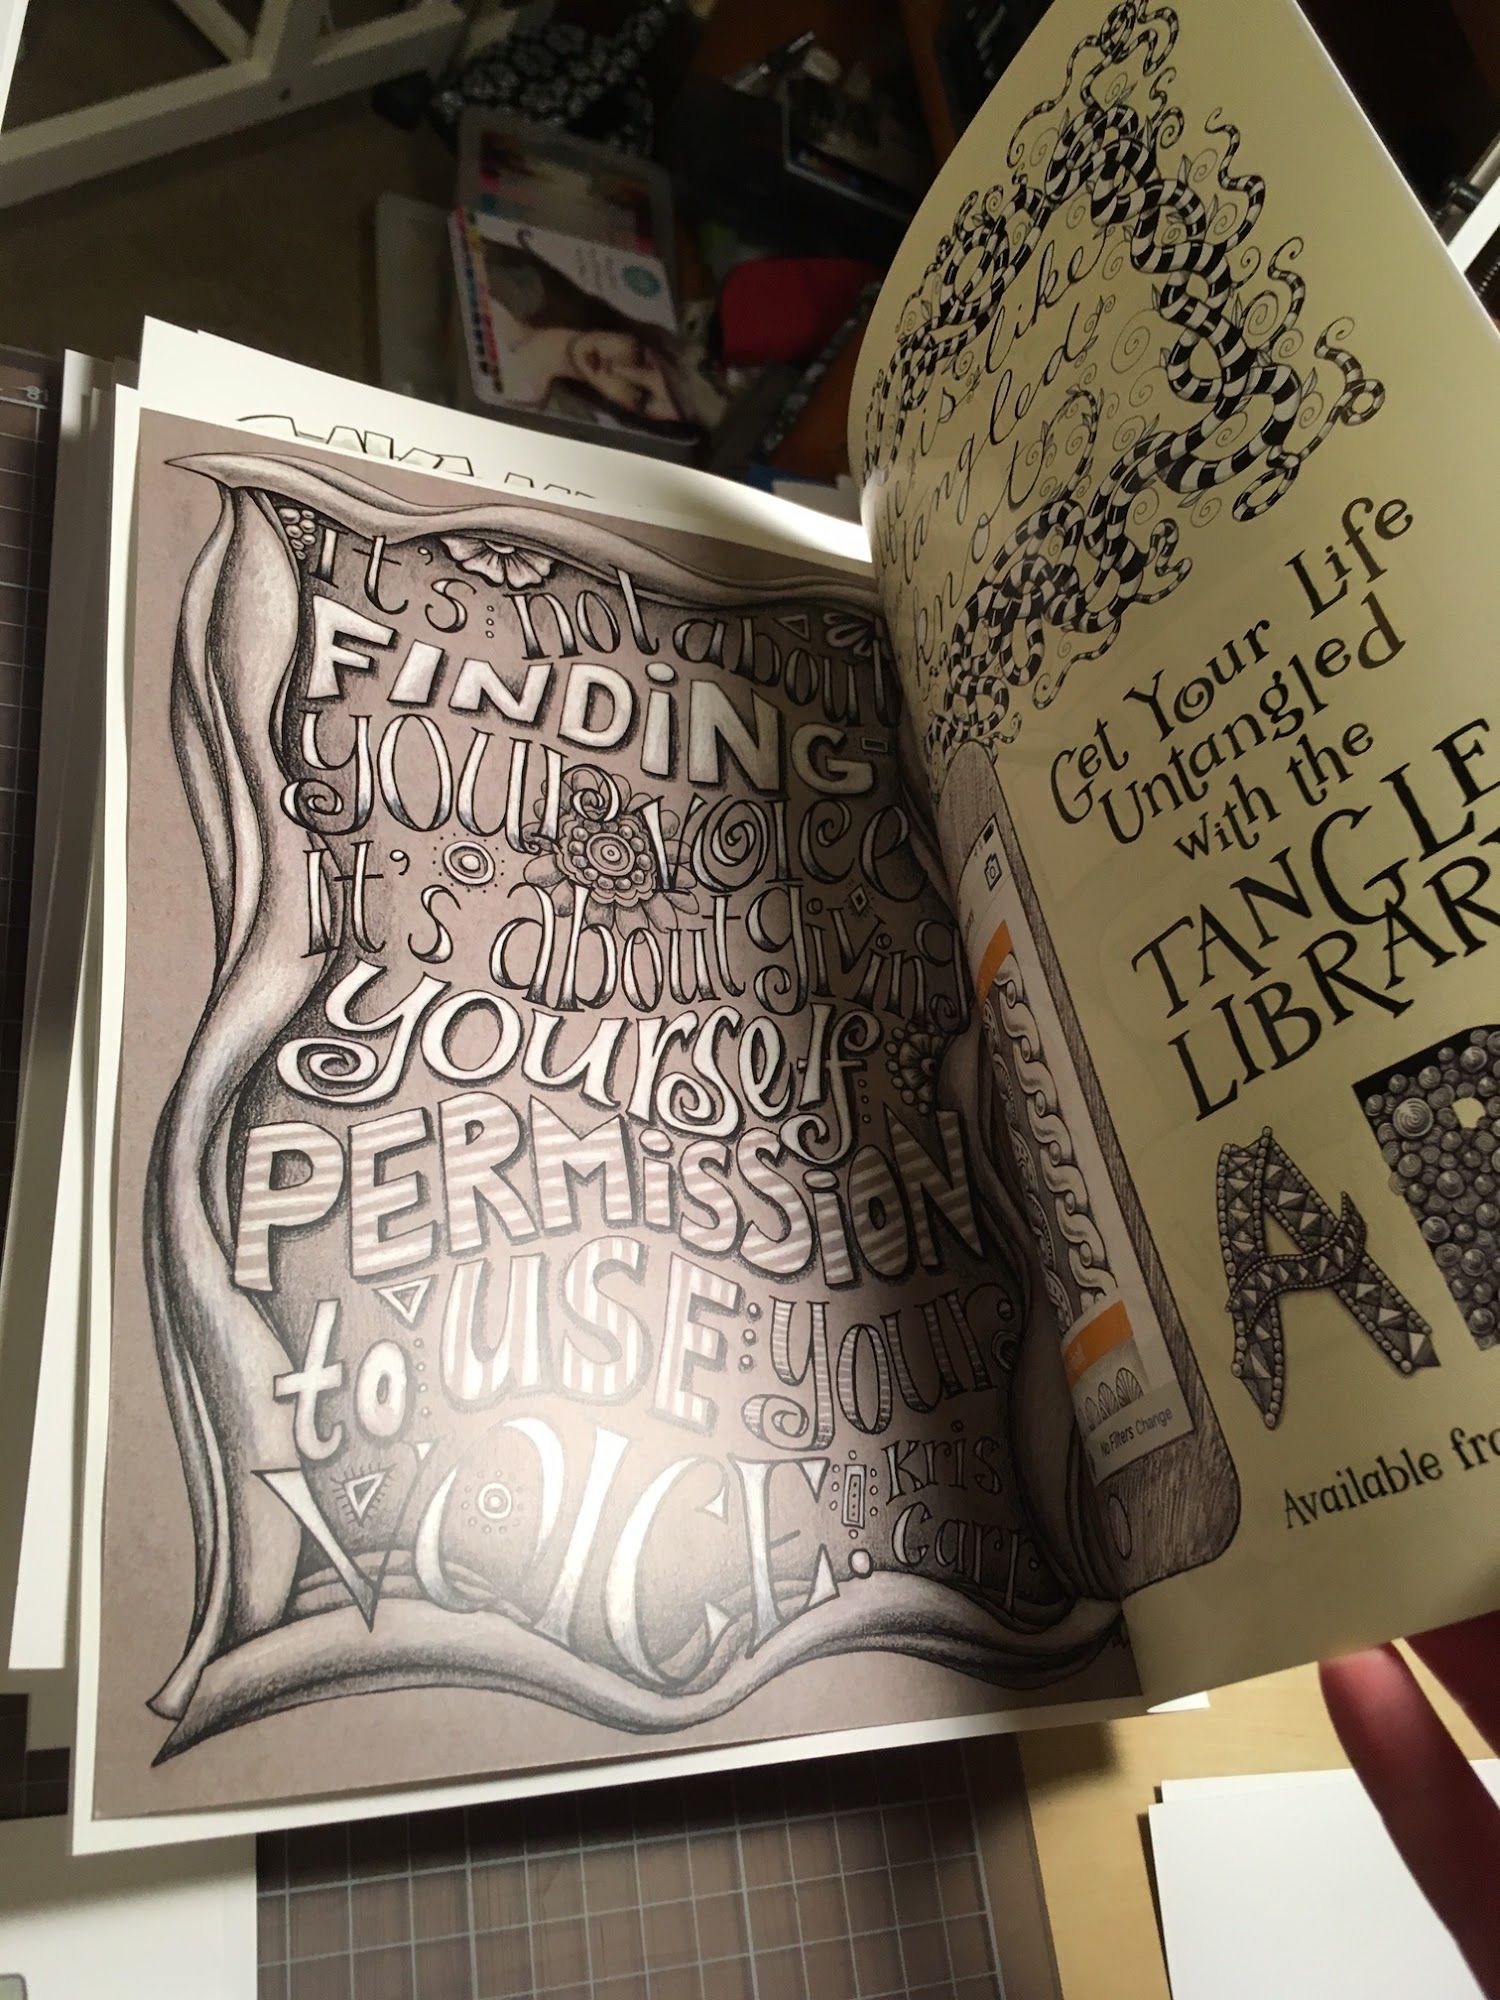 It's not about
FINDING
your voice
It's about giving
yourself
PERMISSION
to USE your
VOICE!
Kris
Carr
is like
tangled
knot
Get Your Life
Untangled
with the
TANGLE
LIBRARY
No Filters Change
AP
Available